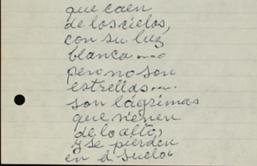 que caen
de los cielos,
con su luz
blanca....
pero no son
estrellas....
son lágrimas
que vienen
de lo alto,
y se pierden
en el suelo.